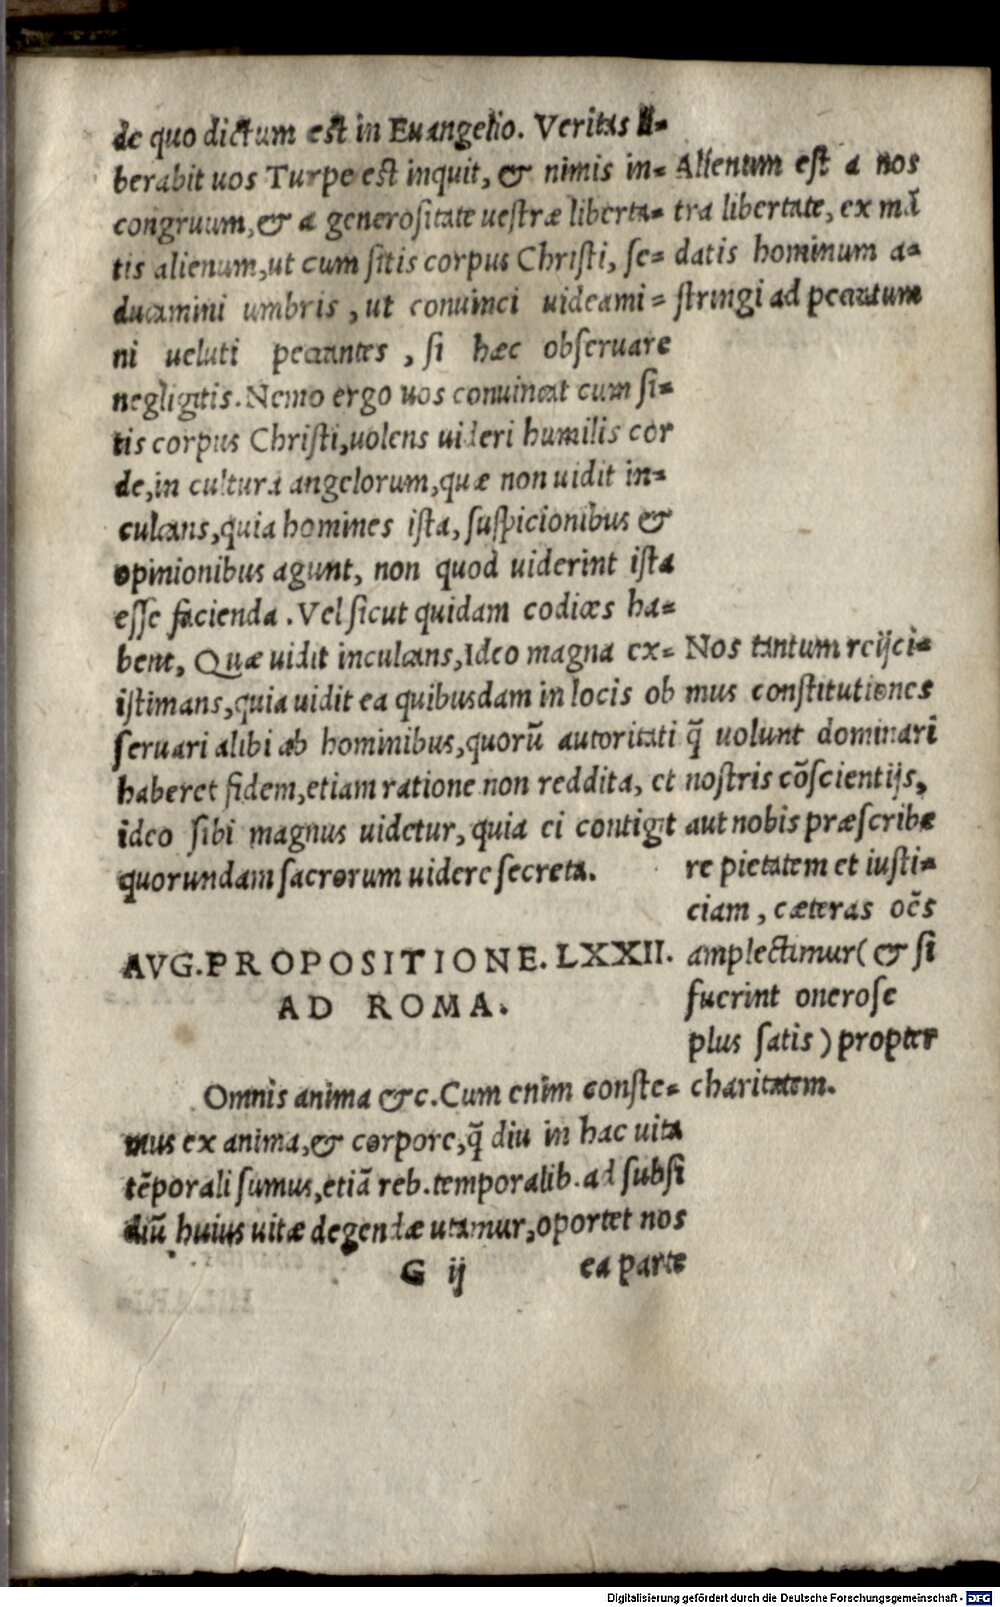 de quo dictum est in Euangelio. Veritas li-
berabit uos Turpe est inquit, & nimis in-
congruum, & a generositate uestræ liberta-
tis alienum, ut cum sitis corpus Christi, se-
ducamini umbris, ut conuinci uideami-
ni ueluti peccantes, si hæc obseruare
negligitis. Nemo ergo uos conuincat cum si-
tis corpus Christi, uolens uideri humilis cor
de, in cultura angelorum, quæ non uidit in-
culcans, quia homines ista, suspicionibus &
opinionibus agunt, non quod uiderint ista
esse facienda. Vel sicut quidam codices ha-
bent, Quæ uidit inculcans, Ideo magna ex-
istimans, quia uidit ea quibusdam in locis ob
seruari alibi ab hominibus, quorū autoritati
haberet fidem, etiam ratione non reddita, et
ideo sibi magnus uidetur, quia ei contigit
quorundam sacrorum uidere secreta.
Alienum est a nos
tra libertate, ex mā
datis hominum a-
stringi ad peccatum
Nos tantum reijci-
mus constitutiones
q̄ uolunt dominari
nostris cōscientijs,
aut nobis præscribe
re pietatem et iusti-
ciam, cæteras oēs
amplectimur (& si
fuerint onerose
plus satis) propter
charitatem.
AVG. PROPOSITIONE. LXXII.
AD ROMA.
Omnis anima &c. Cum enim conste-
mus ex anima, & corpore, q̄ diu in hac uita
tēporali sumus, etiā reb. temporalib. ad subsi
diū huius uitæ degendæ utamur, oportet nos
G ij ea parte
Digitalisierung gefördert durch die Deutsche Forschungsgemeinschaft - DFG